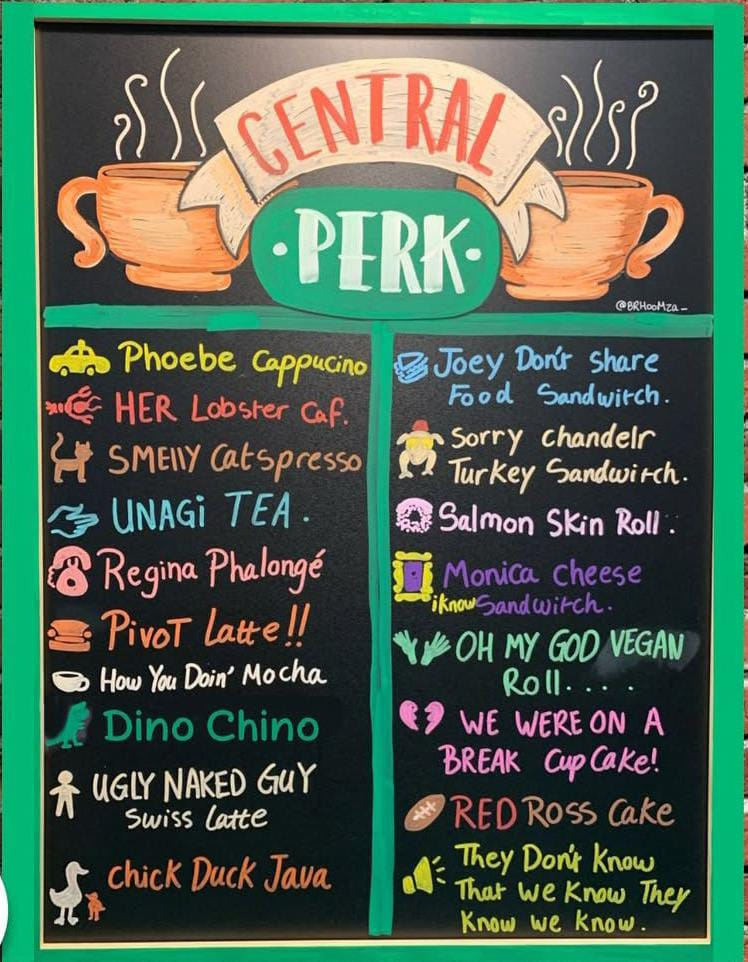 CENTRAL
·PERK·
@BRHOOMZA_
Phoebe Cappucino
HER Lobster Caf.
SMElly Catspresso
UNAGi TEA.
Regina Phalongé
PivoT Latte!!
How You Doin' Mocha
Dino Chino
UGLY NAKED GUY
Swiss Latte
chick Duck Java
Joey Don't share
Food Sandwitch.
Sorry chandelr
Turkey Sandwitch.
Salmon Skin Roll.
Monica cheese
iknow Sandwitch.
OH MY GOD VEGAN
Roll....
WE WERE ON A
BREAK CupCake!
RED Ross Cake
They Don't Know
That We Know They
Know we know.